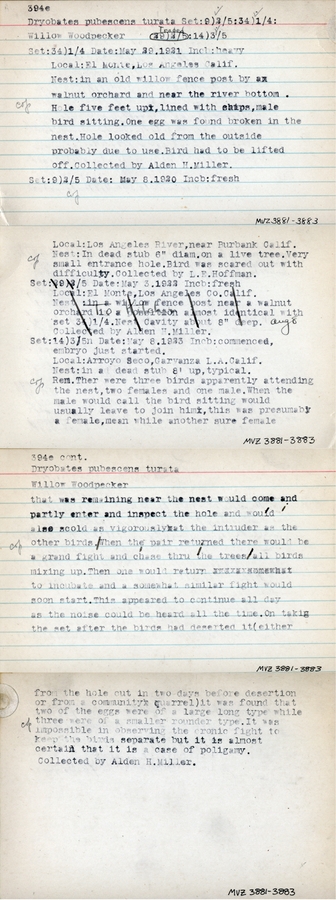 394e
Dryobates pubescens turata Set:9)2/5:34)1/4:
Willow Woodpecker 29)2/5:14)3/5
Set:34)1/4 Date:May 29.1921 Incb:heavy
Local:El Monte,Los Angeles Calif.
Nest:in an old willow fence post by ax
walnut orchard and near the river bottom .
Hole five feet up,lined with chips,male
bird sitting.One egg was found broken in the
nest.Hole looked old from the outside
probably due to use.Bird had to be lifted
off.Collected by Alden H.Miller.
Set:9)2/5 Date: May 8.1920 Incb:fresh
MVZ 3881-3883
Local:Los Angeles River,near Burbank Calif.
Nest:In dead stub 6" diam,on a live tree.Very
small entrance hole.Bird was scared out with
difficulty.Collected by L.E.Hoffman.
Set:29)2/5 Date:May 3.1922 Incb:fresh
Local:El Monte,Los Angeles Co.Calif.
Nest:in a willow fence post near a walnut
orchard in a location almost identical with
set 34)1/4.Nest Cavity about 8" deep.
Collected by Alden H.Miller.
Set:14)3/5n Date:May 8.1923 Incb:commenced,
embryo just started.
Local:Arroyo Seco,Garvanza L.A.Calif.
Nest:in as dead stub 8' up,typical.
Rem.Ther were three birds apparently attending
the nest,two females and one male.When the
male would call the bird sitting would
usually leave to join himx,this was presumably
a female,mean while another sure female
MVZ 3881-3883
394e cont.
Dryobates pubescens turata
Willow Woodpecker
that was remaining near the nest would come and
partly enter and inspect the hole and would
also scold as vigorously at the intruder as the
other birds.When the pair returned there would be
a grand fight and chase thru the trees/all birds
mixing up.Then one would return
to incubate and a somewhat similar fight would
soon start.This appeared to continue all day
as the noise could be heard all the time.On takig
the set after the birds had deserted it(either
MVZ 3881-3883
from the hole cut in two days before desertion
or from a communityx quarrel)it was found that
two of the eggs were of a large long type while
three were of a smaller rounder type.It was
impossible in observing the cronic fight to
keep the birds separate but it is almost
certain that it is a case of poligamy.
Collected by Alden H.Miller.
MVZ 3881-3883